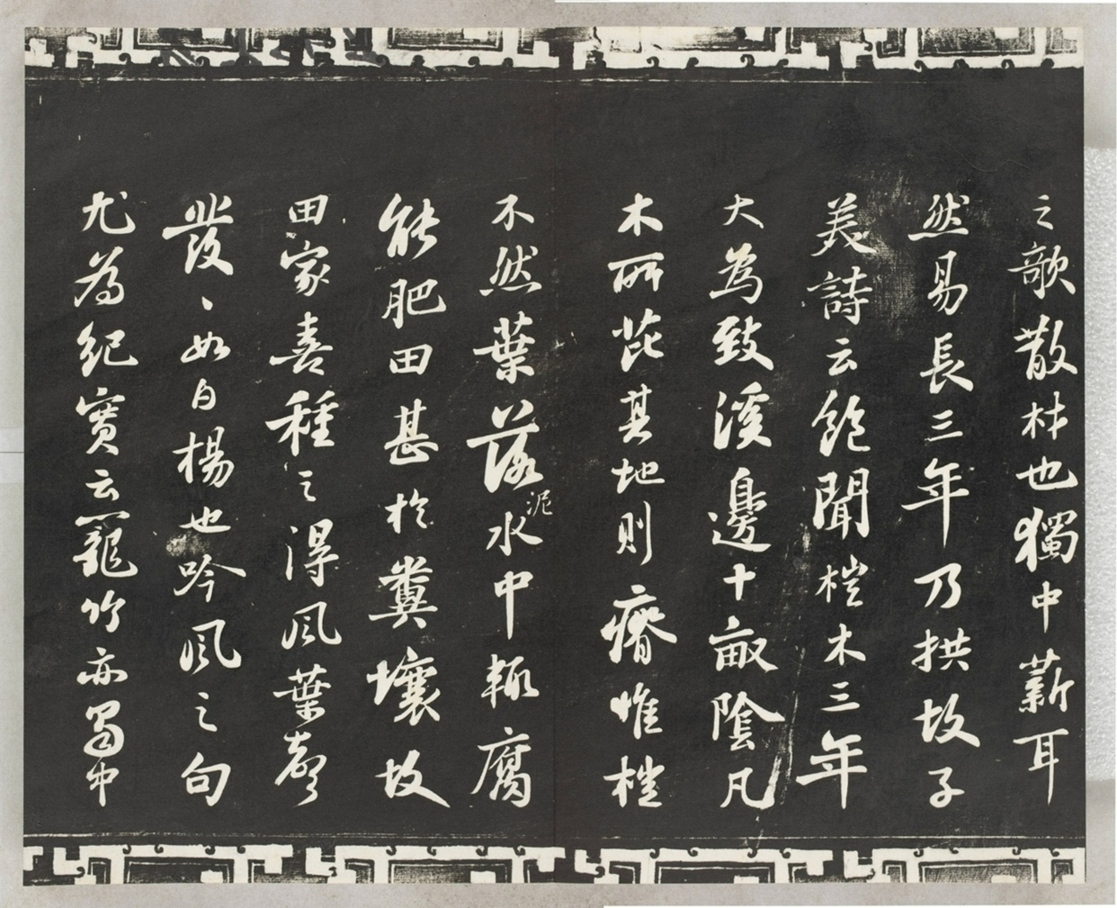 之欹散材也獨中薪耳
然易長三年乃拱故子
美詩云飽聞榿木三年
大為致溪邊十畝陰凡
木所芘其地則瘠惟榿
不然葉落泥水中輒腐
能肥田甚於糞壤故
田家喜種之得風葉聲
發〻如白楊也吟風之句
尤為紀實云籠竹亦蜀中